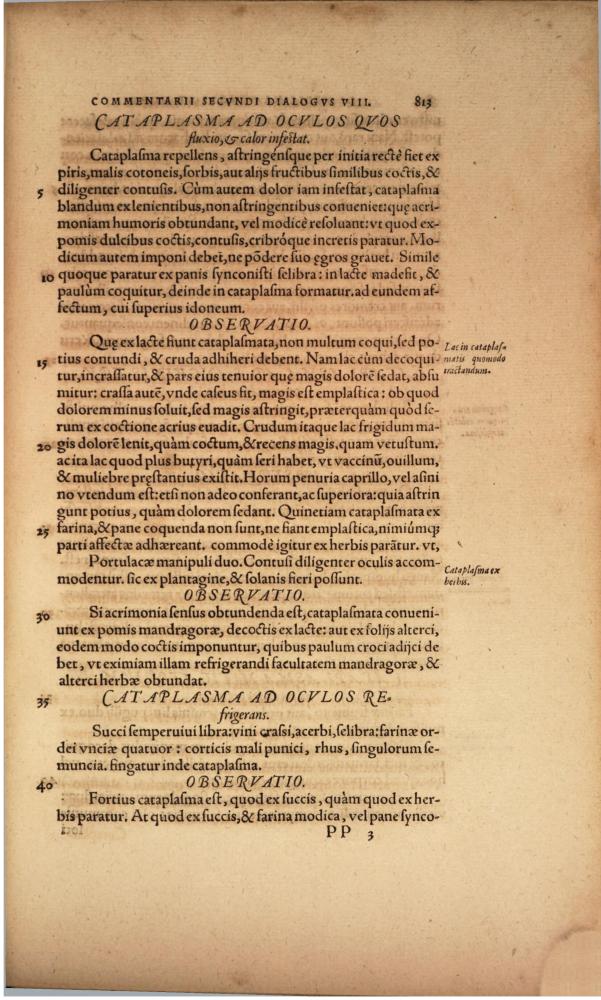 COMMENTARII SECVNDI DIALOGVS VIII. 813
CATAPLASMA AD OCVLOS QVOS
fluxio, & calor infestat.
Cataplasma repellens, astringénsque per initia rectè fiet ex
piris, malis cotoneis, sorbis, aut alijs fructibus similibus coctis, &
5 diligenter contusis. Cùm autem dolor iam infestat, cataplasma
blandum ex lenientibus, non astringentibus conueniet: quę acri-
moniam humoris obtundant, vel modicè resoluant: vt quod ex-
pomis dulcibus coctis, contusis, cribróque incretis paratur. Mo-
dicum autem imponi debet, ne põdere suo ęgros grauet. Simile
10 quoque paratur ex panis synconisti selibra: in lacte madefit, &
paulùm coquitur, deinde in cataplasma formatur. ad eundem af-
fectum, cui superius idoneum.
OBSERVATIO.
Quę ex lacte fiunt cataplasmata, non multum coqui, sed po-
15 tius contundi, & cruda adhiberi debent. Nam lac cùm decoqui-
tur, incrassatur, & pars eius tenuior quę magis dolorẽ sedat, absu
mitur: crassa autẽ, vnde caseus fit, magis est emplastica: ob quod
dolorem minus soluit, sed magis astringit, præterquàm quòd se-
rum ex coctione acrius euadit. Crudum itaque lac frigidum ma-
20 gis dolorẽ lenit, quàm coctum, & recens magis, quam vetustum.
ac ita lac quod plus butyri, quàm seri habet, vt vaccinũ, ouillum,
& muliebre pręstantius existit. Horum penuria caprillo, vel asini
no vtendum est: etsi non adeo conferant, ac superiora: quia astrin
gunt potius, quàm dolorem sedant. Quinetiam cataplasmata ex
25 farina, & pane coquenda non sunt, ne fiant emplastica, nimiúmq;
parti affectæ adhæreant. commodè igitur ex herbis parãtur. vt,
Portulacæ manipuli duo. Contusi diligenter oculis accom-
modentur. sic ex plantagine, & solanis fieri possunt.
OBSERVATIO.
30 Si acrimonia sensus obtundenda est, cataplasmata conueni-
unt ex pomis mandragoræ, decoctis ex lacte: aut ex folijs alterci,
eodem modo coctis imponuntur, quibus paulum croci adijci de
bet, vt eximiam illam refrigerandi facultatem mandragoræ, &
alterci herbæ obtundat.
35 CATAPLASMA AD OCVLOS RE-
frigerans.
Succi semperuiui libra: vini crassi, acerbi, selibra: farinæ or-
dei vnciæ quatuor: corticis mali punici, rhus, singulorum se-
muncia. fingatur inde cataplasma.
40 OBSERVATIO.
Fortius cataplasma est, quod ex succis, quàm quod ex her-
bis paratur. At quod ex succis, & farina modica, vel pane synco-
PP 3
Lac in cataplas-
matis quomodo
tractandum.
Cataplasma ex
herbis.